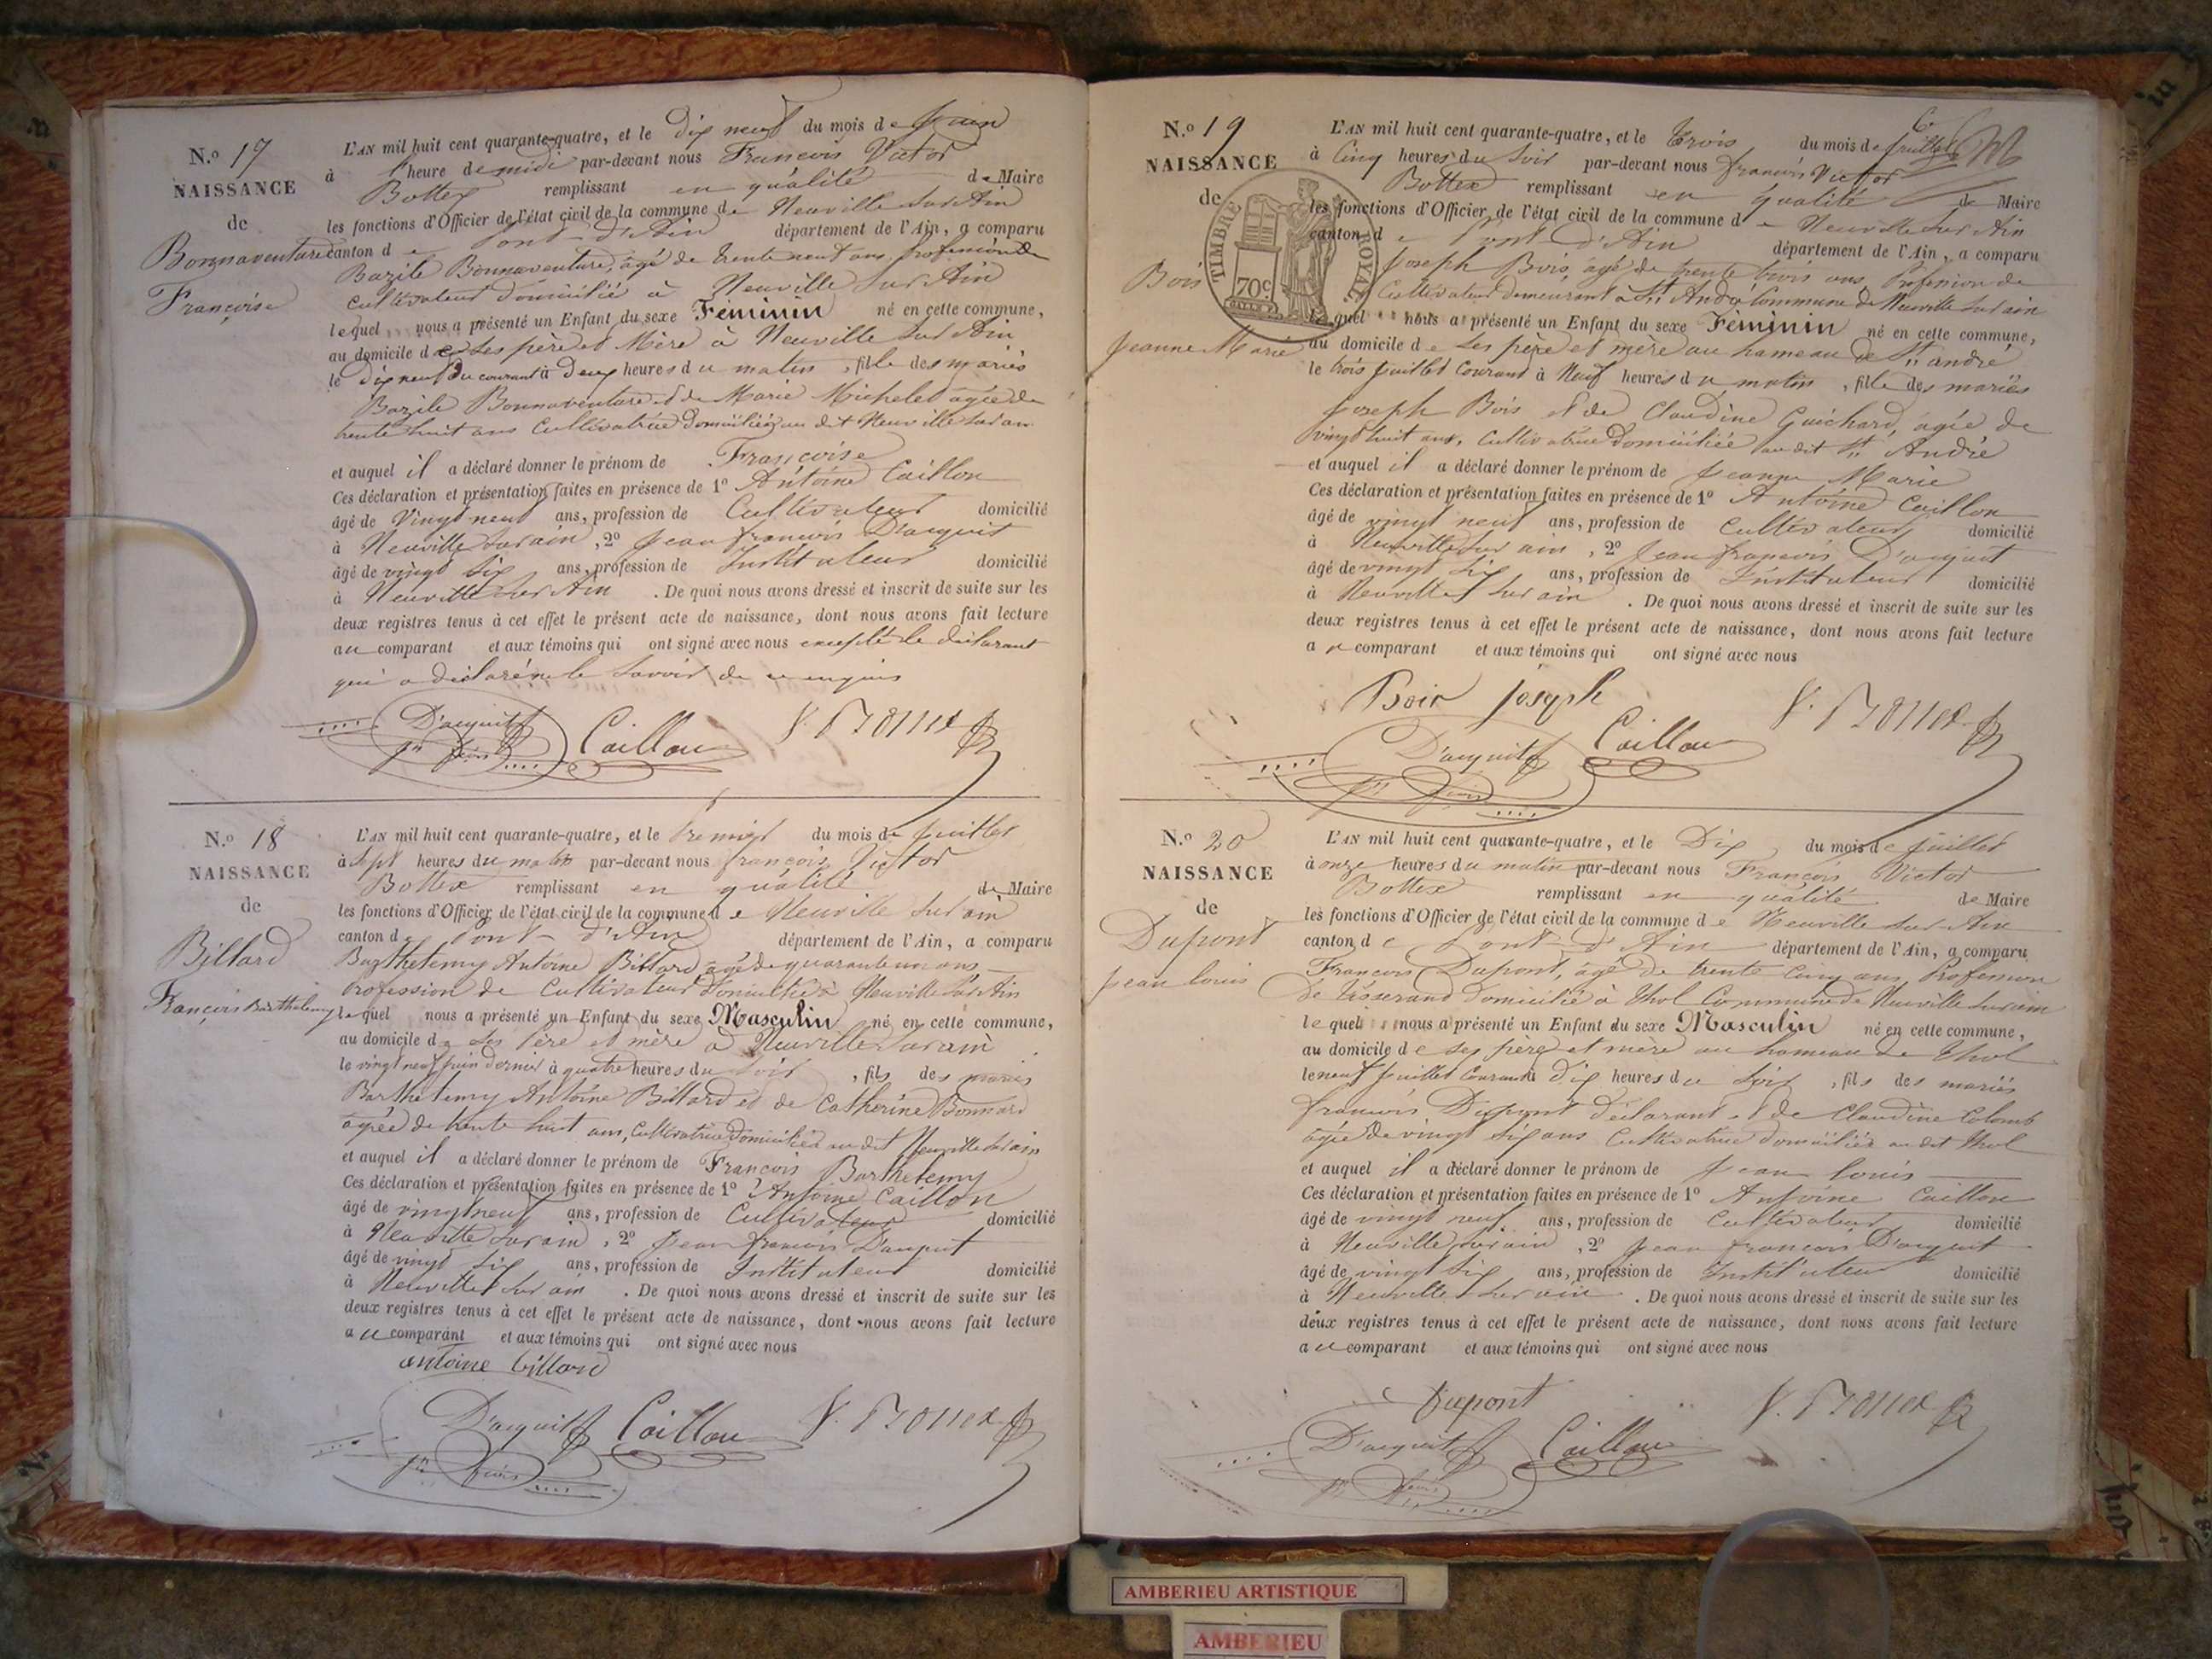 N.o 17
NAISSANCE
de
Bonnaventure
Françoise
L'AN mil huit cent quarante-quatre, et le dix neuf du mois de juin
à l'heure de midi par-devant nous François Victor
Bottex remplissant en qualité de Maire
les fonctions d'Officier de l'état civil de la commune de Neuville sur Ain
canton de Pont-d'Ain département de l'Ain, a comparu
Bazile Bonnaventure, âgé de trente neuf ans profession de
cultivateur domicilié à Neuville sur Ain
lequel nous a présenté un Enfant du sexe Féminin né en cette commune,
au domicile de ses père et Mère à Neuville sur Ain
le dix neuf du courant à deux heures du matin, fille des mariés
Bazile Bonnaventure et de Marie Michelet âgée de
trente huit ans Cultivatrice domiciliée au dit Neuville sur ain
et auquel il a déclaré donner le prénom de Françoise
Ces déclaration et présentation faites en présence de 1o Antoine Caillon
âgé de Vingt neuf ans, profession de Cultivateur domicilié
à Neuville sur ain, 2o Jean françois D'acquit
âgé de vingt six ans, profession de Instituteur domicilié
à Neuville sur Ain. De quoi nous avons dressé et inscrit de suite sur les
deux registres tenus à cet effet le présent acte de naissance, dont nous avons fait lecture
au comparant et aux témoins qui ont signé avec nous excepté le déclarant
qui a déclaré ne le savoir de ce enquis
D'acquit Caillon V. Bottex
N.o 18
NAISSANCE
de
Billard
François Barthelemy
L'AN mil huit cent quarante-quatre, et le Premier du mois de juillet
à sept heures du matin par-devant nous françois Victor
Bottex remplissant en qualité de Maire
les fonctions d'Officier de l'état civil de la commune de Neuville sur ain
canton de Pont-d'Ain département de l'Ain, a comparu
Barthelemy Antoine Billard âgé de quarante un ans
Profession de Cultivateur Domicilié à Neuville sur Ain
lequel nous a présenté un Enfant du sexe Masculin né en cette commune,
au domicile de ses Père et mère à Neuville sur ain
le vingt neuf juin dernier à quatre heures du soir, fils des mariés
Barthelemy Antoine Billard et de Catherine Bonnard
agée de trente huit ans, Cultivatrice Domiciliée au dit Neuville sur ain
et auquel il a déclaré donner le prénom de François Barthelemy
Ces déclaration et présentation faites en présence de 1o Antoine Caillon
âgé de vingt neuf ans, profession de Cultivateur domicilié
à Neuville sur ain, 2o Jean françois D'acquit
âgé de vingt six ans, profession de Instituteur domicilié
à Neuville sur ain. De quoi nous avons dressé et inscrit de suite sur les
deux registres tenus à cet effet le présent acte de naissance, dont nous avons fait lecture
au comparant et aux témoins qui ont signé avec nous
antoine billard
D'acquit Caillon V. Bottex
N.o 19
NAISSANCE
de
Bois
Jeanne Marie
TIMBRE ROYAL
70c
L'AN mil huit cent quarante-quatre, et le trois du mois de juillet
à Cinq heures du Soir par-devant nous françois Victor
Bottex remplissant en qualité de Maire
les fonctions d'Officier de l'état civil de la commune de Neuville sur Ain
canton de Pont-d'Ain département de l'Ain, a comparu
Joseph Bois, âgé de trente trois ans, Profession de
Cultivateur demeurant à St André Commune de Neuville sur ain
lequel nous a présenté un Enfant du sexe Féminin né en cette commune,
au domicile de ses père et mère au hameau de St andré
le trois juillet Courant à Neuf heures du matin, fille des mariés
Joseph Bois et de Claudine Guichard, agée de
vingt huit ans, Cultivatrice Domiciliée au dit St André
et auquel il a déclaré donner le prénom de Jeanne Marie
Ces déclaration et présentation faites en présence de 1o Antoine Caillon
âgé de vingt neuf ans, profession de Cultivateur domicilié
à Neuville sur ain, 2o Jean françois D'acquit
âgé de vingt six ans, profession de Instituteur domicilié
à Neuville sur ain. De quoi nous avons dressé et inscrit de suite sur les
deux registres tenus à cet effet le présent acte de naissance, dont nous avons fait lecture
au comparant et aux témoins qui ont signé avec nous
Bois joseph V. Bottex
D'acquit Caillon
N.o 20
NAISSANCE
de
Dupont
Jean louis
L'AN mil huit cent quarante-quatre, et le Dix du mois de juillet
à onze heures du matin par-devant nous François Victor
Bottex remplissant en qualité de Maire
les fonctions d'Officier de l'état civil de la commune de Neuville sur Ain
canton de Pont-d'Ain département de l'Ain, a comparu
François Dupont, âgé de trente cinq ans, Profession
de Tisserand Domicilié à Thol Commune de Neuville sur ain
lequel nous a présenté un Enfant du sexe Masculin né en cette commune,
au domicile de ses père et mère au hameau de Thol
le neuf juillet Courant à dix heures du soir, fils des mariés
françois Dupont déclarant et de Claudine Colomb
agée de vingt six ans Cultivatrice domiciliée au dit Thol
et auquel il a déclaré donner le prénom de Jean louis
Ces déclaration et présentation faites en présence de 1o Antoine Caillon
âgé de vingt neuf ans, profession de Cultivateur domicilié
à Neuville sur ain, 2o Jean françois D'acquit
âgé de vingt six ans, profession de Instituteur domicilié
à Neuville sur ain. De quoi nous avons dressé et inscrit de suite sur les
deux registres tenus à cet effet le présent acte de naissance, dont nous avons fait lecture
au comparant et aux témoins qui ont signé avec nous
Dupont V. Bottex
D'acquit Caillon
AMBERIEU ARTISTIQUE
AMBERIEU